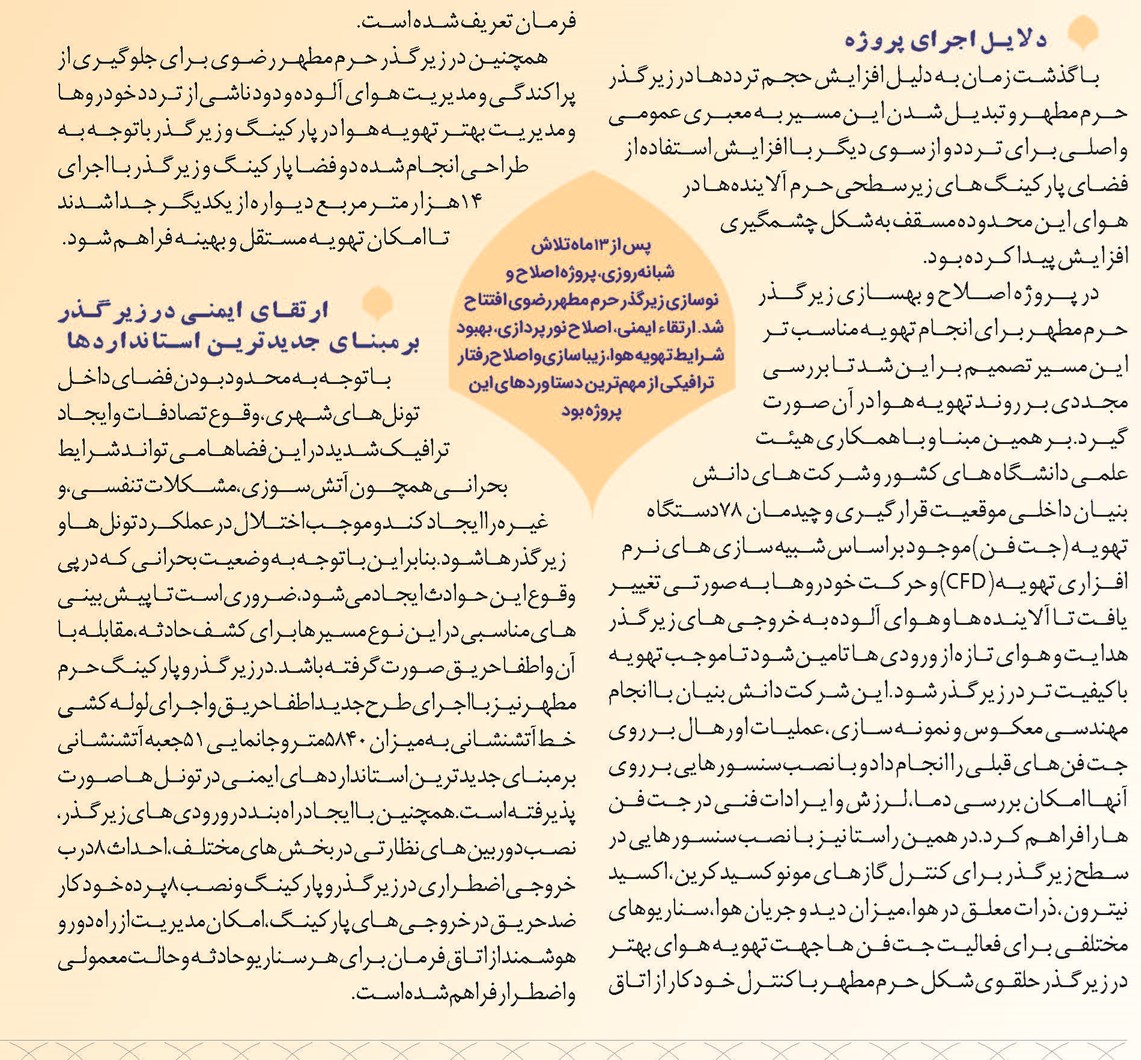 دلایل اجرای پروژه
با گذشت زمان به دلیل افزایش حجم ترددها در زیرگذر
حرم مطهر و تبدیل شدن این مسیر به معبری عمومی
و اصلی برای تردد و از سوی دیگر با افزایش استفاده از
فضای پارکینگ‌های زیرسطحی حرم آلاینده‌ها در
هوای این محدوده مسقف به شکل چشمگیری
افزایش پیدا کرده بود.
در پروژه اصلاح و بهسازی زیرگذر
حرم مطهر برای انجام تهویه مناسب تر
این مسیر تصمیم بر این شد تا بررسی
مجددی بر روند تهویه هوا در آن صورت
گیرد. بر همین مبنا و با همکاری هیئت
علمی دانشگاه‌های کشور و شرکت‌های دانش
بنیان داخلی موقعیت قرارگیری و چیدمان ۷۸ دستگاه
تهویه (جت فن) موجود بر اساس شبیه سازی های نرم
افزاری تهویه (CFD) و حرکت خودروها به صورتی تغییر
یافت تا آلاینده ها و هوای آلوده به خروجی های زیرگذر
هدایت و هوای تازه از ورودی ها تامین شود تا موجب تهویه
با کیفیت تر در زیرگذر شود. این شرکت دانش بنیان با انجام
مهندسی معکوس و نمونه سازی، عملیات اورهال بر روی
جت فن‌های قبلی را انجام داد و با نصب سنسورهایی بر روی
آنها امکان بررسی دما، لرزش و ایرادات فنی در جت فن
ها را فراهم کرد. در همین راستا نیز با نصب سنسورهایی در
سطح زیرگذر برای کنترل گازهای مونوکسید کربن، اکسید
نیترون، ذرات معلق در هوا، میزان دید و جریان هوا، سناریوهای
مختلفی برای فعالیت جت فن ها جهت تهویه هوای بهتر
در زیرگذر حلقوی شکل حرم مطهر با کنترل خودکار از اتاق
فرمان تعریف شده است.
همچنین در زیرگذر حرم مطهر رضوی برای جلوگیری از
پراکندگی و مدیریت هوای آلوده و دود ناشی از تردد خودروها
و مدیریت بهتر تهویه هوا در پارکینگ و زیرگذر با توجه به
طراحی انجام شده دو فضا پارکینگ و زیرگذر با اجرای
۱۴ هزار متر مربع دیواره از یکدیگر جدا شدند
تا امکان تهویه مستقل و بهینه فراهم شود.
پس از ۱۳ ماه تلاش
شبانه روزی، پروژه اصلاح و
نوسازی زیرگذر حرم مطهر رضوی افتتاح
شد. ارتقاء ایمنی، اصلاح نورپردازی، بهبود
شرایط تهویه هوا، زیباسازی و اصلاح رفتار
ترافیکی از مهم‌ترین دستاوردهای این
پروژه بود
ارتقای ایمنی در زیرگذر
بر مبنای جدیدترین استانداردها
با توجه به محدود بودن فضای داخل
تونل‌های شهری، وقوع تصادفات و ایجاد
ترافیک شدید در این فضاها می تواند شرایط
بحرانی همچون آتش سوزی، مشکلات تنفسی، و
غیره را ایجاد کند و موجب اختلال در عملکرد تونل ها و
زیرگذرها شود. بنابراین با توجه به وضعیت بحرانی که در پی
وقوع این حوادث ایجاد می شود، ضروری است تا پیش بینی
های مناسبی در این نوع مسیرها برای کشف حادثه، مقابله با
آن و اطفا حریق صورت گرفته باشد. در زیرگذر و پارکینگ حرم
مطهر نیز با اجرای طرح جدید اطفا حریق و اجرای لوله کشی
خط آتشنشانی به میزان ۵۸۴۰ متر و جانمایی ۵۱ جعبه آتشنشانی
بر مبنای جدیدترین استانداردهای ایمنی در تونل ها صورت
پذیرفته است. همچنین با ایجاد راه بند در ورودی های زیرگذر،
نصب دوربین های نظارتی در بخش های مختلف، احداث ۸ درب
خروجی اضطراری در زیرگذر و پارکینگ و نصب ۸ پرده خودکار
ضد حریق در خروجی های پارکینگ، امکان مدیریت از راه دور و
هوشمند از اتاق فرمان برای هر سناریو حادثه و حالت معمولی
و اضطرار فراهم شده است.